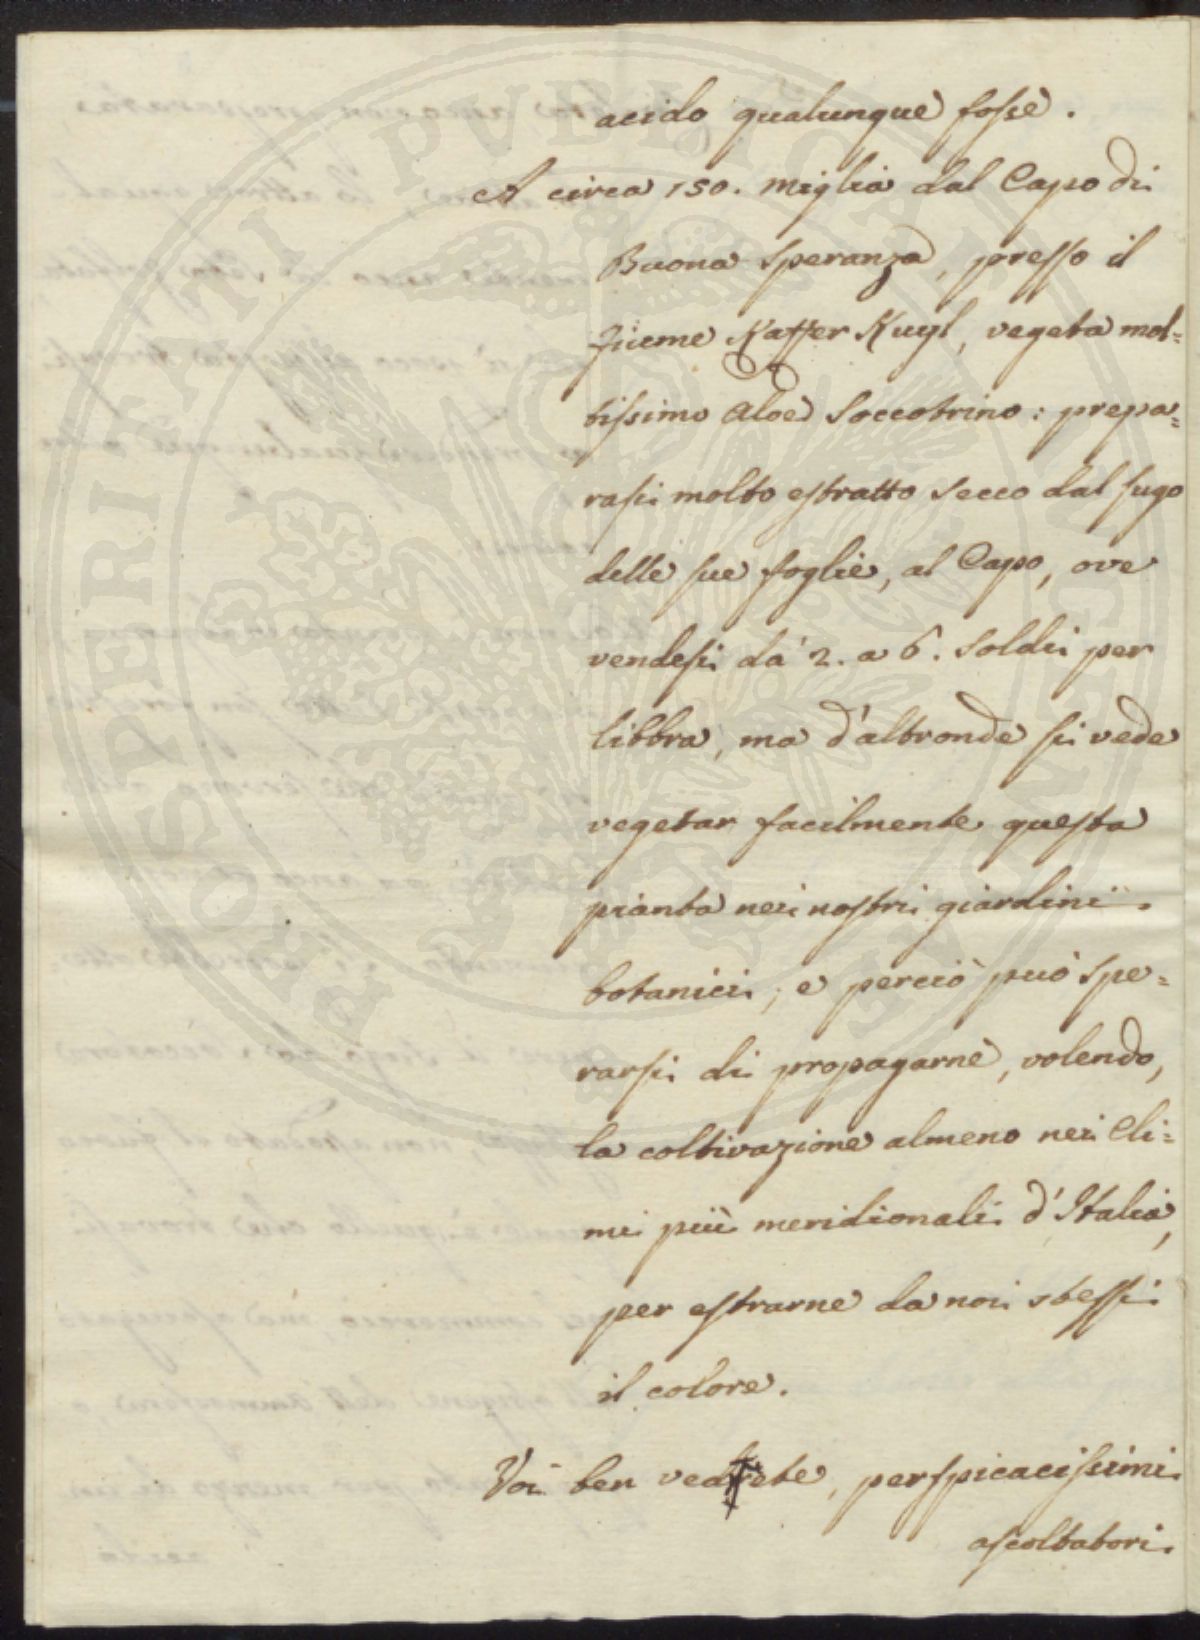 acido qualunque fosse.
A circa 150. miglia dal Capo di
Buona Speranza, presso il
fiume Kaffer Kuyl, vegeta mol=
tissimo Aloe Soccotrino: prepa=
rasi molto estratto secco dal sugo
delle sue foglie, al Capo, ove
vendesi da 2. a 6. soldi per
libbra, ma d'altronde si vede
vegetar facilmente questa
pianta nei nostri giardini
botanici, e perciò può spe=
rarsi di propagarne, volendo,
la coltivazione almeno nei Cli=
mi più meridionali d'Italia,
per estrarne da noi stessi
il colore.
Voi ben vedete, perspicacissimi
ascoltatori.
PROSPERITATI PUBLICAE AUGENDAE